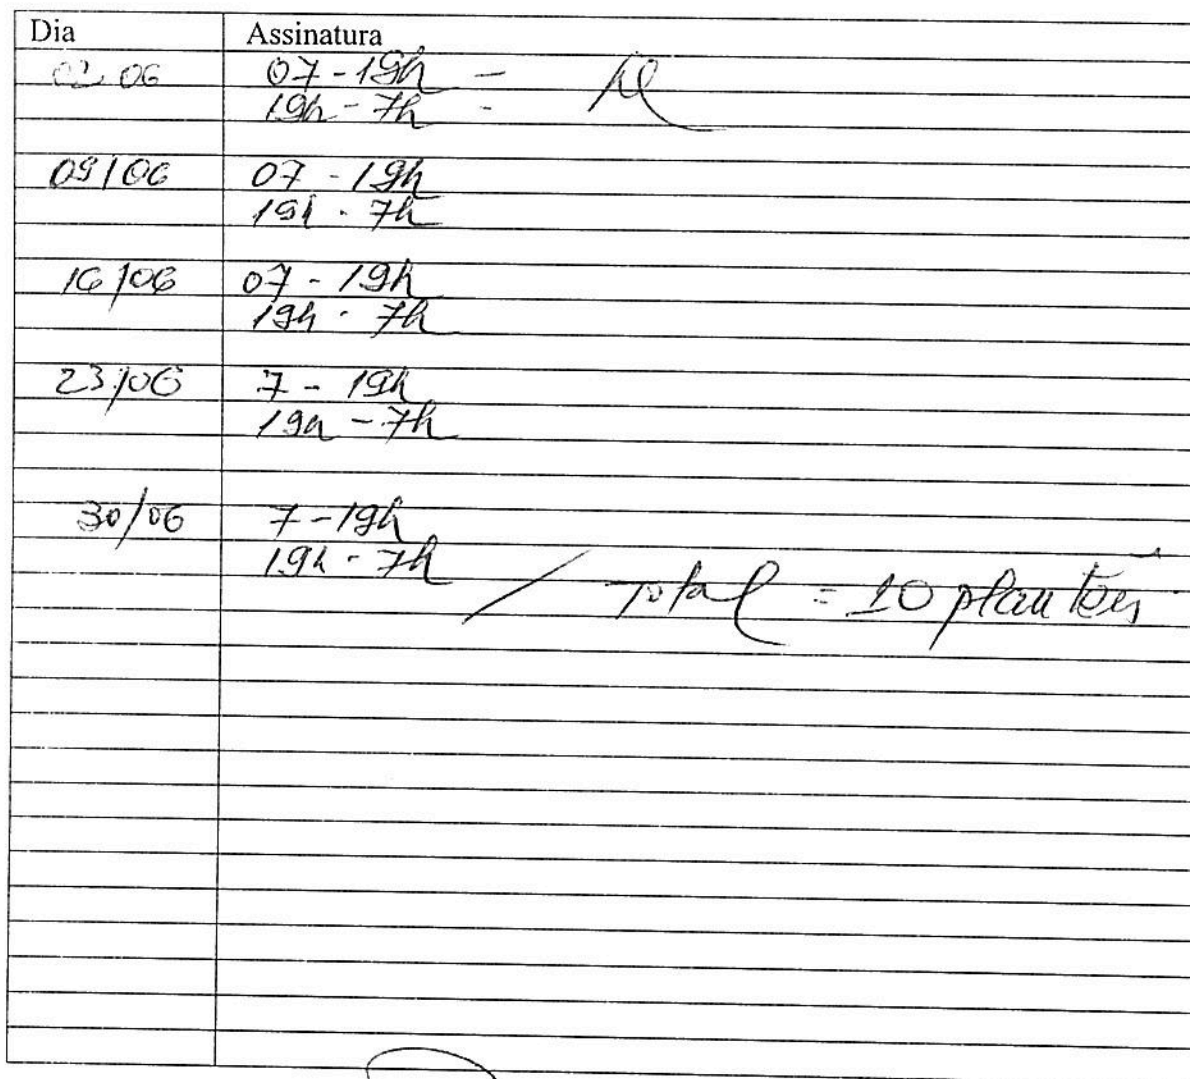 Dia Assinatura
02 06 07 - 19h -
19h - 7h -
09/06 07 - 19h
19h - 7h
16/06 07 - 19h
19h - 7h
23/06 7 - 19h
19h - 7h
30/06 7 - 19h
19h - 7h / Total = 10 plantões